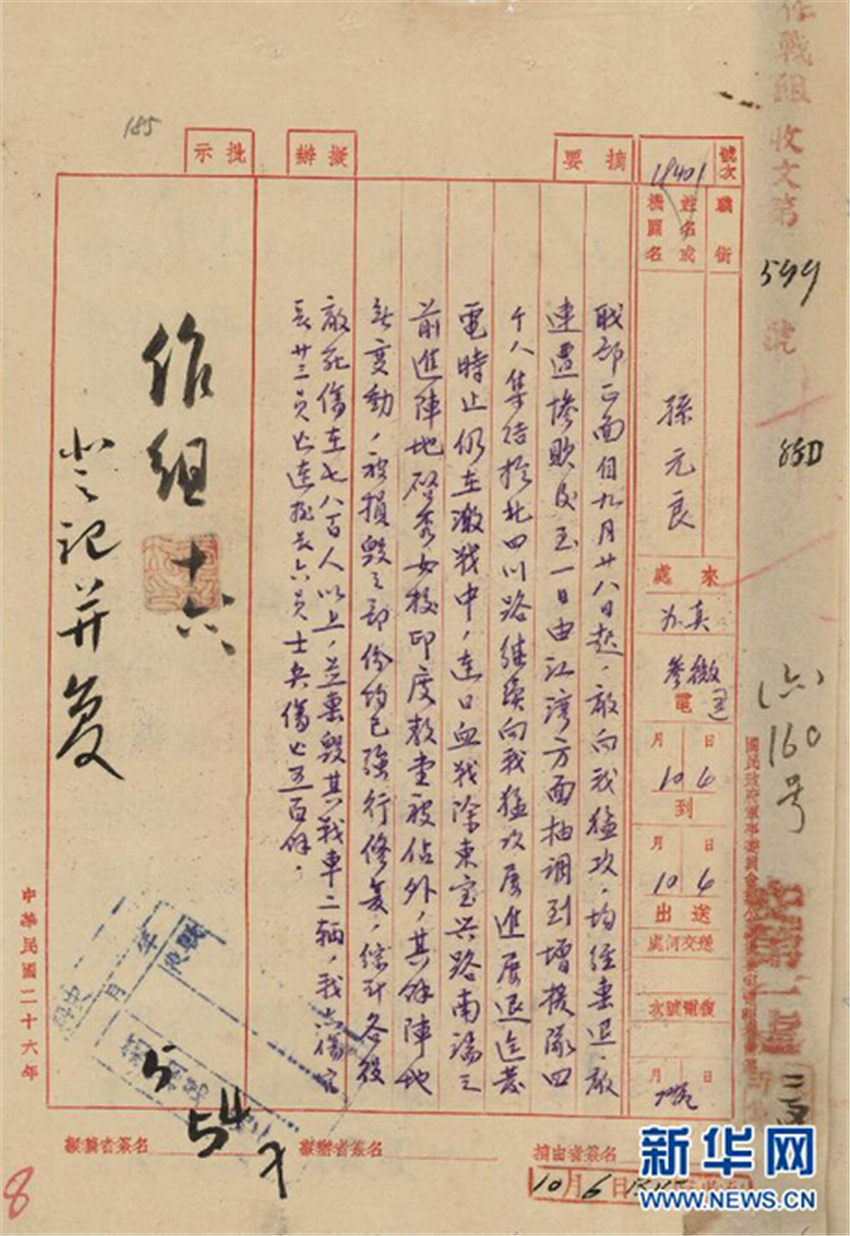 作戰組收文第
599
號
850
160号
號次
18401
職銜
姓名或
機關名
孫元良
來處
電
月 日
10 6
到
月 日
10 6
送出
送交何處
復電號次
月 日
摘要
職部正面自九月廿八日起，敵向我猛攻，均經擊退，敵
連遭慘敗後至一日由江灣方面抽調到增援隊四
千人集結於北四川路繼續向我猛攻屢進屢退迄發
電時止仍在激戰中，連日血戰除東寶興路南端之
前進陣地啓秀女校印度教堂被佔外，其餘陣地
無變動，被損毀之部份均已強行修复，綜計各役
敵死傷在七八百人以上，並擊毀其戰車二輛，我亦傷官
長廿三員亡連排長六員士兵傷亡五百餘。
擬辦
批示
作組 十六
登記并复
185
中華民國二十六年
年 月
5
54
擬稿者簽名
擬辦者簽名
摘由者簽名
10月6日
8
新华网
WWW.NEWS.CN